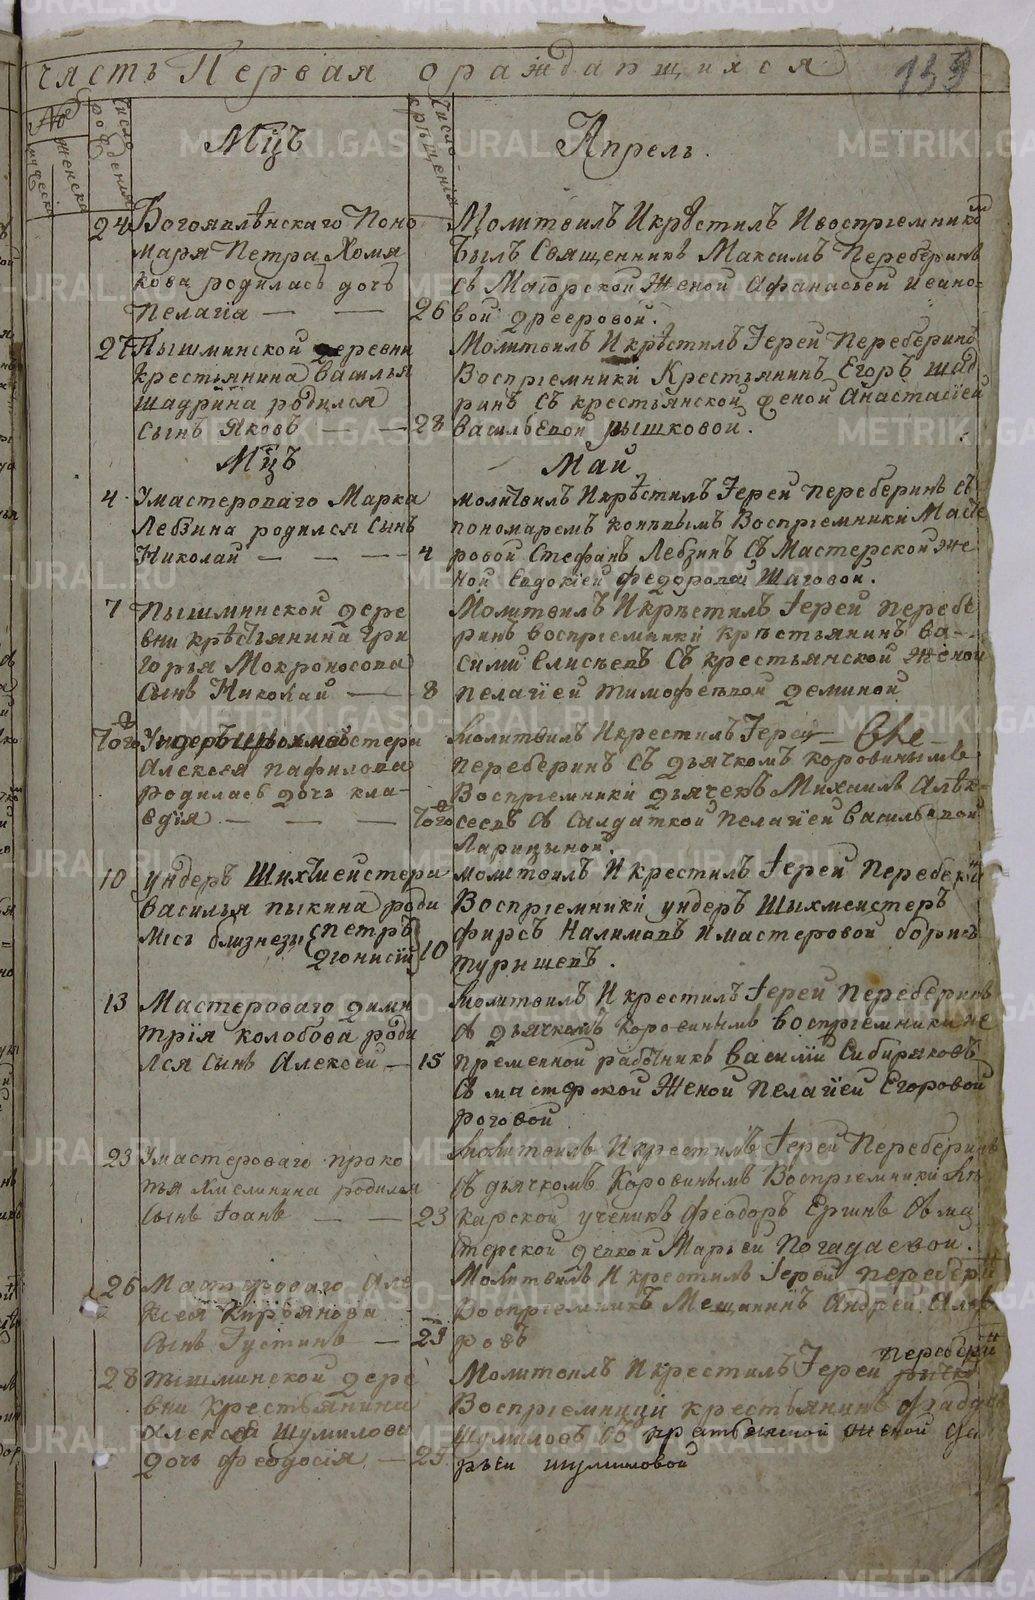 часть Первая о раждающихся 133
№
мужеска
женска
число рождения
Мцъ
число крещения
Апрель.
24 Богоявленскаго Поно
маря Петра Хомя
кова родилась дочь
Пелагїа — — 26
Молитвилъ Икрестилъ Ивоспрiемником
Былъ Священникъ Максимъ Переберинъ
съ Маіорской Женой Афанасьей Ивано-
вой
27 Пышминской деревни
крестьянина Василья
Шадрина родился
сынъ Яковъ — — 28
Молитвилъ Икрѣстилъ Іерей Переберинъ
Воспрiемники Крестьянинъ Егоръ Шад
ринъ Съ крестьянской женой Анастасїей
Васильевой Пышковой.
Мцъ
Май
4 Умастероваго Марка
Лебзина родился Сынъ
Николай — — — 4
молитвилъ Икрѣстилъ Іерей Переберинъ съ
пономаремъ Воспрiемники Масте
ровой Стефанъ Лебзинъ Съ Мастерской Же
ной Евдокіей Федоровой Шаговой.
7 Пышминской дере
вни крѣстьянина Гри
горья Мокроносова
Сынъ Николай — 8
Молитвилъ Икрѣстилъ Іерей Перебе
ринъ воспрiемники крѣстьянинъ Ва-
силий Елисѣевъ Съ крестьянской Женой
пелагїей тимофеевой деминой
Того Ундеръ Шихмейстера
Алексея Панфилова
родилась дочь кла-
вдїя — — — Того
Молитвилъ Икрестилъ Іерей —
Переберинъ Съ дьячкомъ коровинымъ
Воспрiемники дьячекъ Михаилъ Алек-
сеевъ Съ Салдаткой Пелагїей Васильевой
Ларицыной.
10 ундеръ Шихмейстера
Василья пыкина роди
лись близнецы Петръ
Дионисїй 10
молитвилъ И крестилъ Іерей Переберин
Воспрiемники ундеръ Шыхмейстеръ
Фирсъ Налимовъ И мастеровой Борисъ
Турышевъ.
13 Мастероваго дими
трїя колобова роди
лся Сынъ Алексей — 15
Молитвилъ И крестилъ Іерей Переберинъ
Съ дьячкомъ Коровинымъ воспрiемники не
пременной работникъ Василїй Сибиряковъ
Съ мастерской Женой Пелагїей Егоровой
роговой
23 Умастероваго проко
пья Хмелинина родился
Сынъ Іоанъ — — 23
Молитвилъ Икрестилъ Іерей Переберинъ
Съ дьячкомъ Коровинымъ Воспрiемники Ле
карской ученикъ Феодоръ Ергинъ Съ ма
стерской девкой Марьей Погадаевой.
26 Мастероваго Але
ксея Кирьянова
Сынъ Густинъ — 29
Молитвилъ И крестилъ Іерей Перебери
Воспрiемникъ Мещанинъ Андрей
ровъ
28 Пышминской дере
вни Крестьянина
Алексея Шумилова
Дочь Феодосїя — 29
Молитвилъ Икрестилъ Іерей Перебери
Воспрiемники крестьянинъ
Шумиловъ Съ крестьянской женой Да
рьей Шумиловой